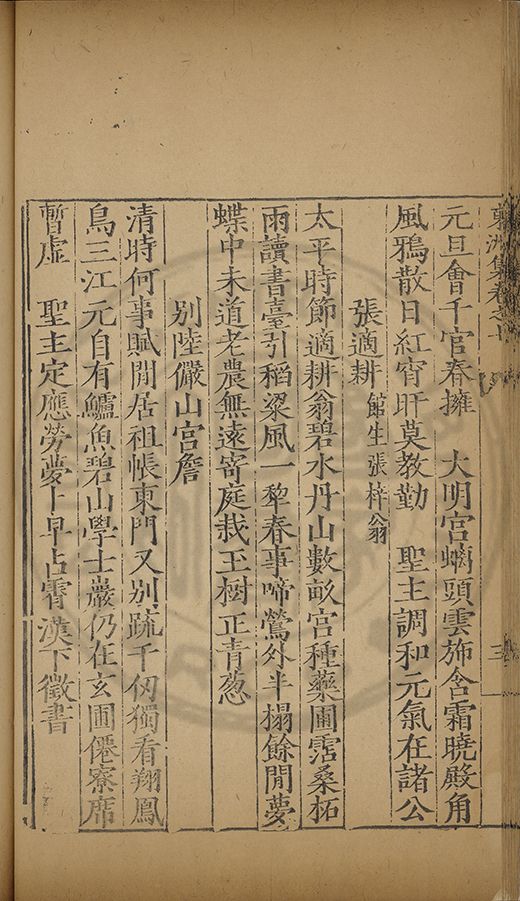 東洲集卷之七
三
元旦會千官春擁　大明宮螭頭雲斾含霜曉殿角
風鴉散日紅宵旰莫教勤　聖主調和元氣在諸公
張適耕　館生張梓翁
太平時節適耕翁碧水丹山數畝宮種藥圃霑桑柘
雨讀書臺引稻粱風一犂春事啼鶯外半榻餘閒夢
蝶中未道老農無遠寄庭栽玉樹正青葱
別陸儼山宮詹
清時何事賦閒居祖帳東門又別疏千仞獨看翔鳳
鳥三江元自有鱸魚碧山學士巖仍在玄圃僊寮席
暫虛　聖主定應勞夢卜早占霄漢下徵書